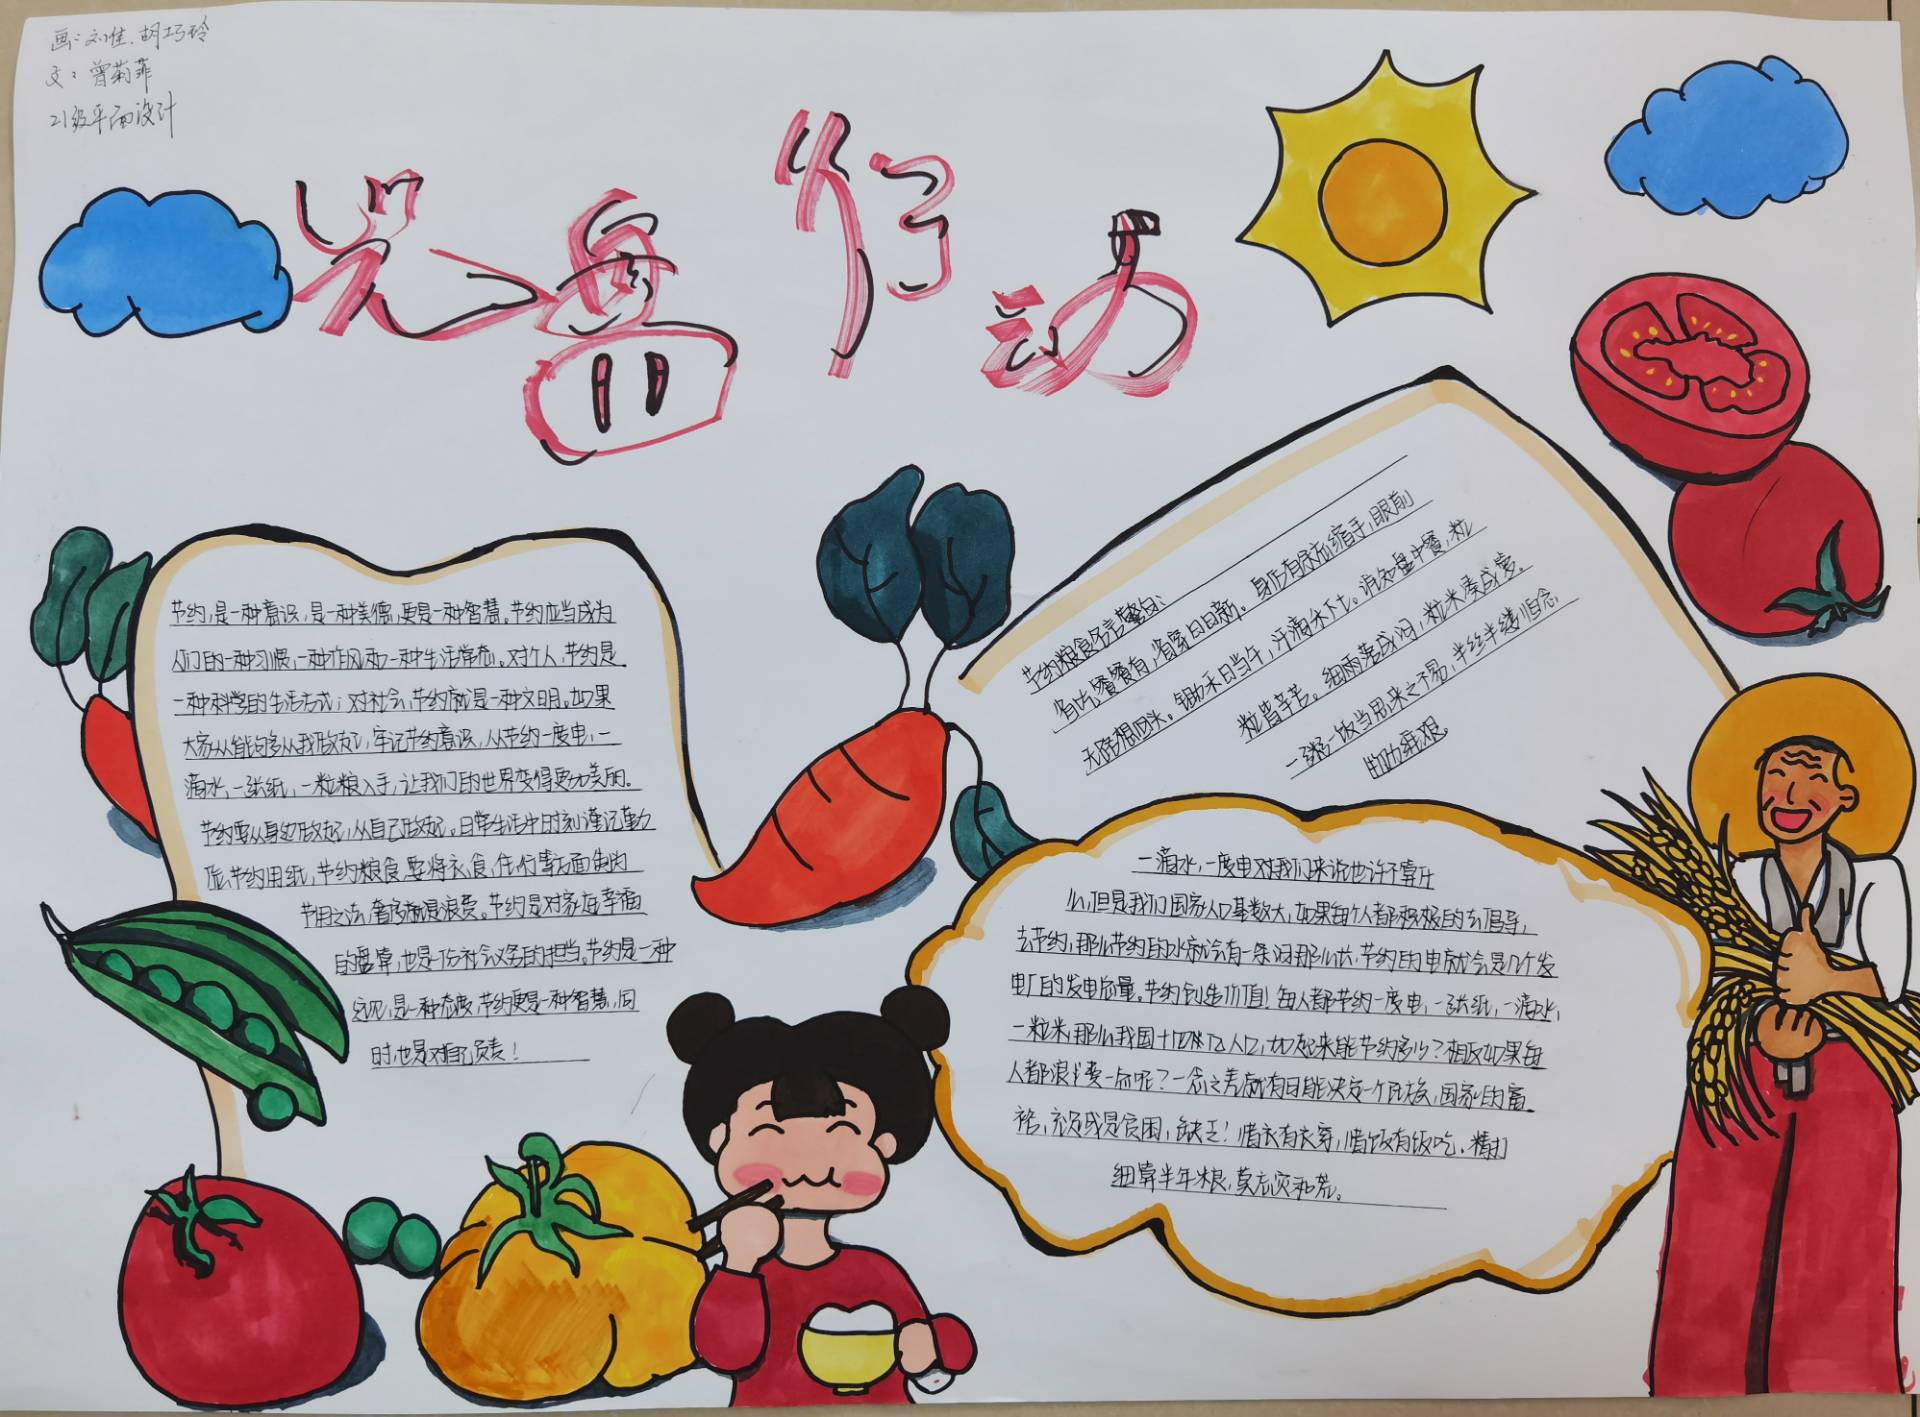 画：刘佳.胡巧玲
文：曾菊菲
21级平面设计
光盘行动
节约,是一种意识,是一种美德,更是一种智慧。节约应当成为
人们的一种习惯,一种作风和一种生活常态。对个人,节约是
一种科学的生活方式；对社会,节约就是一种文明。如果
大家从能够从我做起,牢记节约意识,从节约一度电,一
滴水,一张纸,一粒粮入手,让我们的世界变得更加美丽。
节约要从身边做起,从自己做起。日常生活中时刻谨记勤力
应节约用纸,节约粮食,要将衣,食,住,行等方面制为
节用之法,奢侈就是浪费。节约是对家庭幸福
的盘算,也是一份社会义务的担当。节约是一种
是一种态度,节约更是一种智慧,同
时,也是对自己负责！
节约粮食名言警句：
省吃餐餐有,省穿日日新。身后有余忘缩手,眼前
无路想回头。锄禾日当午,汗滴禾下土。谁知盘中餐,粒
粒皆辛苦。细雨落成河,粒米凑成箩。
一粥一饭当思来之不易,半丝半缕恒念
物力维艰。
一滴水,一度电对我们来说也许不算什
么,但是我们国家人口基数大,如果每个人都积极的去倡导,
去节约,那么节约的水就会有一条河那么长,节约的电就会是几个发
电厂的发电质量。节约创造价值！每人都节约一度电,一张纸,一滴水,
一粒米,那么我国十四亿人口,加起来能节约多少？相反如果每
人都浪费一点呢？一念之差就有可能决定一个民族,国家的富
裕,充足或是贫困,缺乏！惜衣有衣穿,惜饭有饭吃。精打
细算半年粮,莫忘灾和荒。